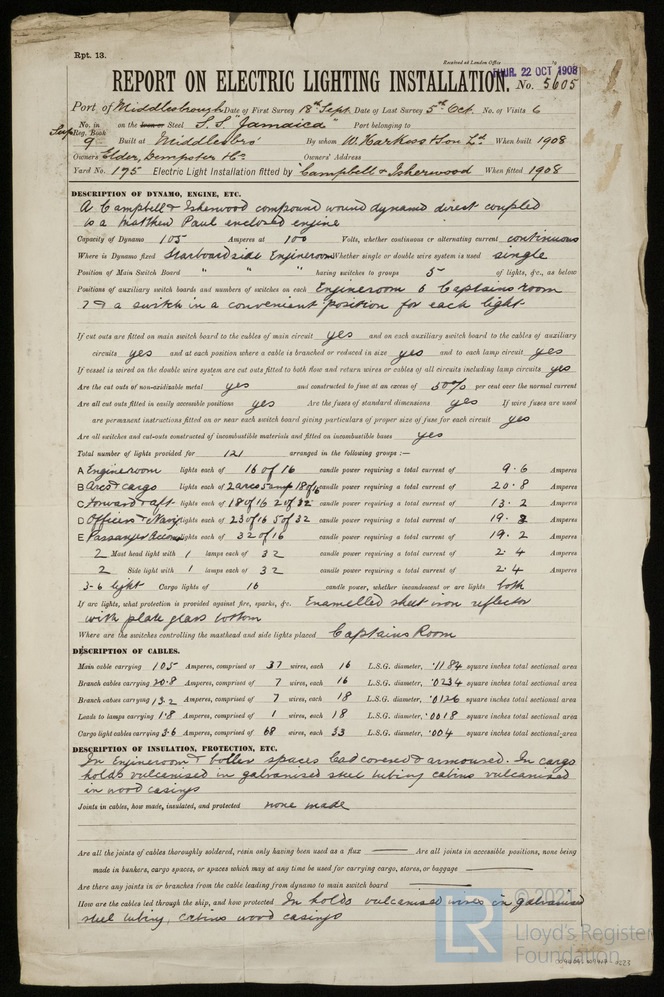 Rpt. 13.
Received at London Office
THUR. 22 OCT 1908
REPORT ON ELECTRIC LIGHTING INSTALLATION. No. 5605
Port of Middlesbrough Date of First Survey 18th Sept. Date of Last Survey 5th Oct. No. of Visits 6
No. in Sup Reg. Book 9 on the Iron or Steel S.S. "Jamaica" Port belonging to
Built at Middlesbro' By whom W. Harkess & Son Ld. When built 1908
Owners Elder, Dempster & Co Owners' Address
Yard No. 175 Electric Light Installation fitted by Campbell & Isherwood When fitted 1908
DESCRIPTION OF DYNAMO, ENGINE, ETC.
A Campbell & Isherwood compound wound dynamo direct coupled
to a Matthew Paul enclosed engine
Capacity of Dynamo 105 Amperes at 100 Volts, whether continuous or alternating current continuous
Where is Dynamo fixed Starboard side Engineroom Whether single or double wire system is used single
Position of Main Switch Board " " " having switches to groups 5 of lights, &c., as below
Positions of auxiliary switch boards and numbers of switches on each Engineroom 6 Captains room
7 & a switch in a convenient position for each light
If cut outs are fitted on main switch board to the cables of main circuit yes and on each auxiliary switch board to the cables of auxiliary
circuits yes and at each position where a cable is branched or reduced in size yes and to each lamp circuit yes
If vessel is wired on the double wire system are cut outs fitted to both flow and return wires or cables of all circuits including lamp circuits yes
Are the cut outs of non-oxidizable metal yes and constructed to fuse at an excess of 50% per cent over the normal current
Are all cut outs fitted in easily accessible positions yes Are the fuses of standard dimensions yes If wire fuses are used
are permanent instructions fitted on or near each switch board giving particulars of proper size of fuse for each circuit yes
Are all switches and cut-outs constructed of incombustible materials and fitted on incombustible bases yes
Total number of lights provided for 121 arranged in the following groups :—
A Engineroom lights each of 16 of 16 candle power requiring a total current of 9.6 Amperes
B Arcs & cargo lights each of 2 arcs 5 amp 18 of 16 candle power requiring a total current of 20.8 Amperes
C Forward & aft lights each of 18 of 16 2 of 32 candle power requiring a total current of 13.2 Amperes
D Officers & Navig lights each of 23 of 16 5 of 32 candle power requiring a total current of 19. Amperes
E Passenger Accom lights each of 32 of 16 candle power requiring a total current of 19.2 Amperes
2 Mast head light with 1 lamps each of 32 candle power requiring a total current of 2.4 Amperes
2 Side light with 1 lamps each of 32 candle power requiring a total current of 2.4 Amperes
3-6 light Cargo lights of 16 candle power, whether incandescent or arc lights both
If arc lights, what protection is provided against fire, sparks, &c. Enamelled sheet iron reflector
with plate glass bottom
Where are the switches controlling the masthead and side lights placed Captains Room
DESCRIPTION OF CABLES.
Main cable carrying 105 Amperes, comprised of 37 wires, each 16 L.S.G. diameter, .1184 square inches total sectional area
Branch cables carrying 20.8 Amperes, comprised of 7 wires, each 16 L.S.G. diameter, .0234 square inches total sectional area
Branch cables carrying 13.2 Amperes, comprised of 7 wires, each 18 L.S.G. diameter, .0126 square inches total sectional area
Leads to lamps carrying 1.8 Amperes, comprised of 1 wires, each 18 L.S.G. diameter, .0018 square inches total sectional area
Cargo light cables carrying 3.6 Amperes, comprised of 68 wires, each 33 L.S.G. diameter, .004 square inches total sectional area
DESCRIPTION OF INSULATION, PROTECTION, ETC.
In Engineroom & boiler spaces lead covered & armoured. In cargo
holds vulcanised in galvanised steel tubing cabins vulcanised
in wood casings
Joints in cables, how made, insulated, and protected none made
Are all the joints of cables thoroughly soldered, resin only having been used as a flux — Are all joints in accessible positions, none being
made in bunkers, cargo spaces, or spaces which may at any time be used for carrying cargo, stores, or baggage —
Are there any joints in or branches from the cable leading from dynamo to main switch board —
How are the cables led through the ship, and how protected In holds vulcanised wires in galvanised
steel tubing, cabins wood casings
LR
© 2021
Lloyd's Register
Foundation